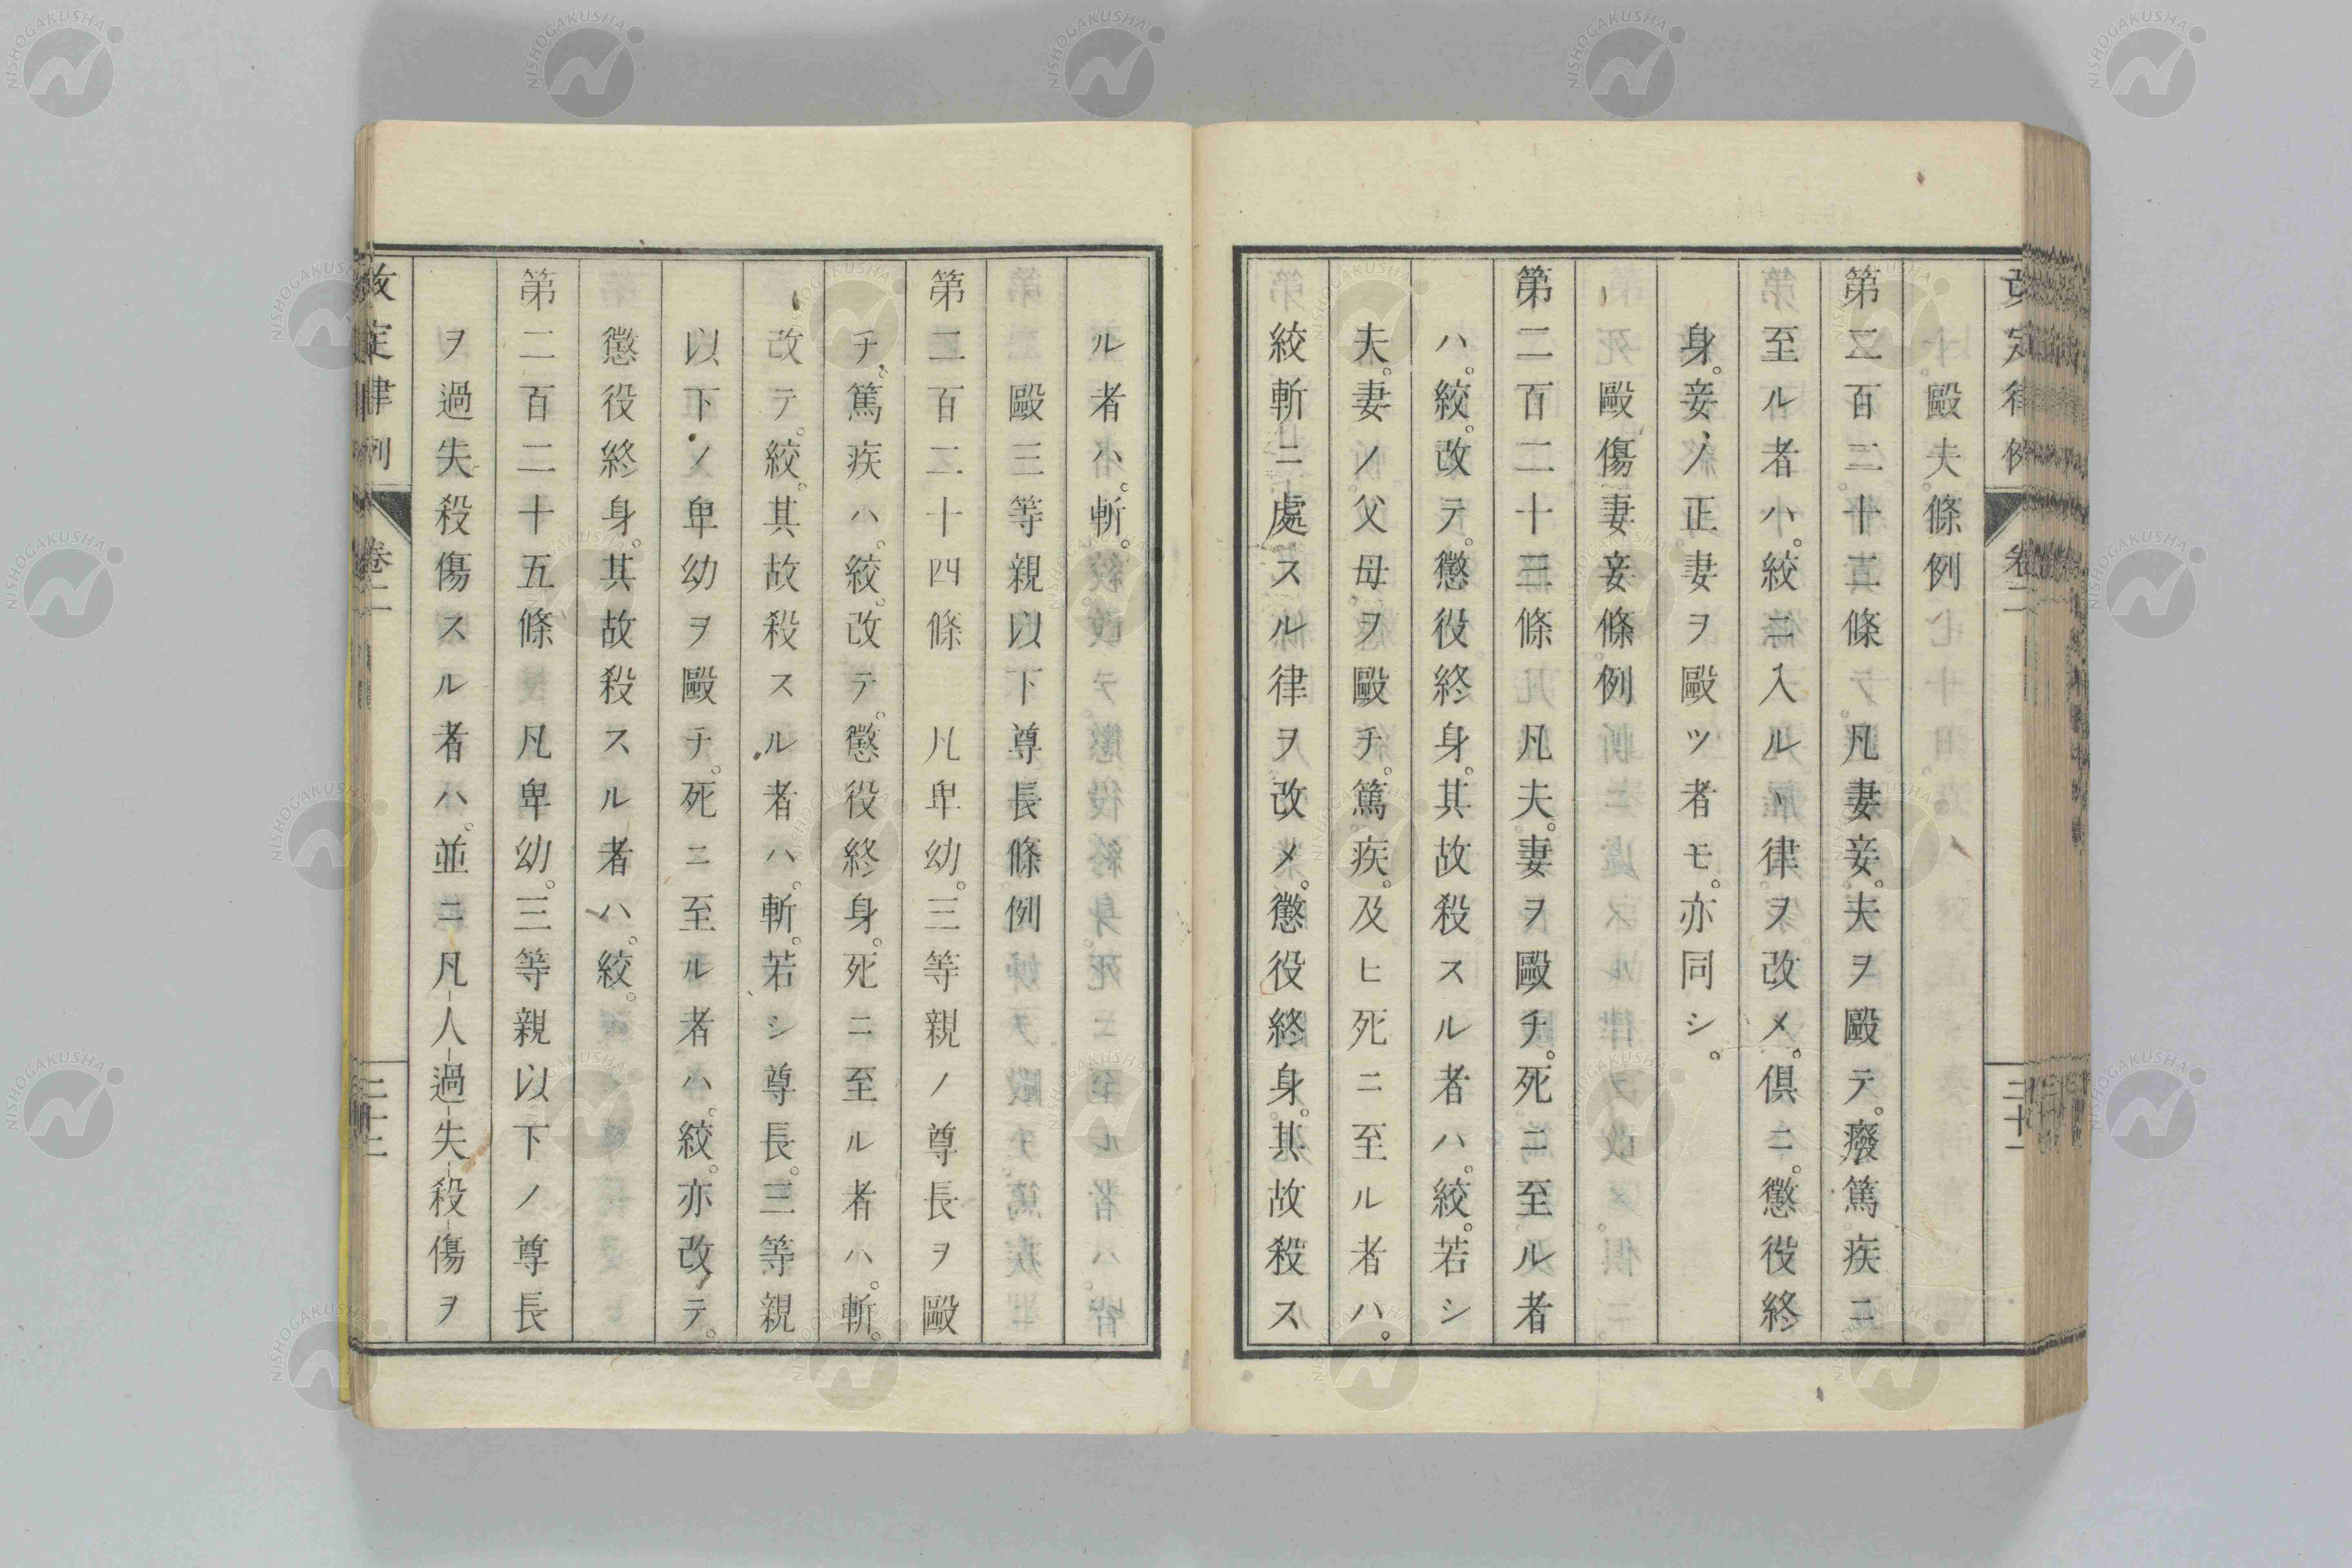 改定律例 卷二 二十一
毆夫條例
第二百二十二條 凡妻妾。夫ヲ毆テ。癈篤疾ニ
至ル者ハ。絞ニ入ルヽ律ヲ改メ。倶ニ。懲役終
身。妾ノ正妻ヲ毆ツ者モ。亦同シ。
毆傷妻妾條例
第二百二十三條 凡夫。妻ヲ毆チ。死ニ至ル者
ハ。絞。改テ。懲役終身。其故殺スル者ハ。絞。若シ
夫。妻ノ父母ヲ毆チ。篤疾。及ヒ死ニ至ル者ハ。
絞斬ニ處スル律ヲ改メ。懲役終身。其故殺ス
ル者ハ。斬。
毆三等親以下尊長條例
第二百二十四條 凡卑幼。三等親ノ尊長ヲ毆
チ。篤疾ハ。絞。改テ。懲役終身。死ニ至ル者ハ。斬。
改テ。絞。其故殺スル者ハ。斬。若シ尊長。三等親
以下ノ卑幼ヲ毆チ。死ニ至ル者ハ。絞。亦改テ。
懲役終身。其故殺スル者ハ。絞。
第二百二十五條 凡卑幼。三等親以下ノ尊長
ヲ過失殺傷スル者ハ。並ニ凡人過失殺傷ヲ
改定律例 卷二 二十二
NISHOGAKUSHA